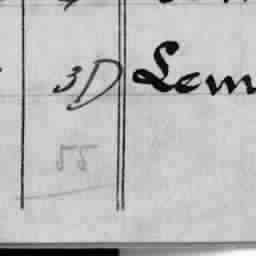 3D Lem
55